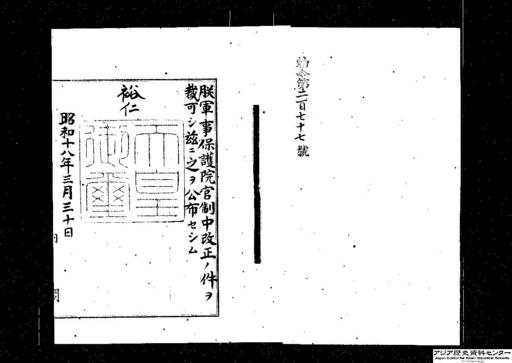 勅令第二百七十七號
朕軍事保護院官制中改正ノ件ヲ
裁可シ茲ニ之ヲ公布セシム
裕仁
天皇
御璽
昭和十八年三月三十日
アジア歴史資料センター
Japan Center for Asian Historical Records